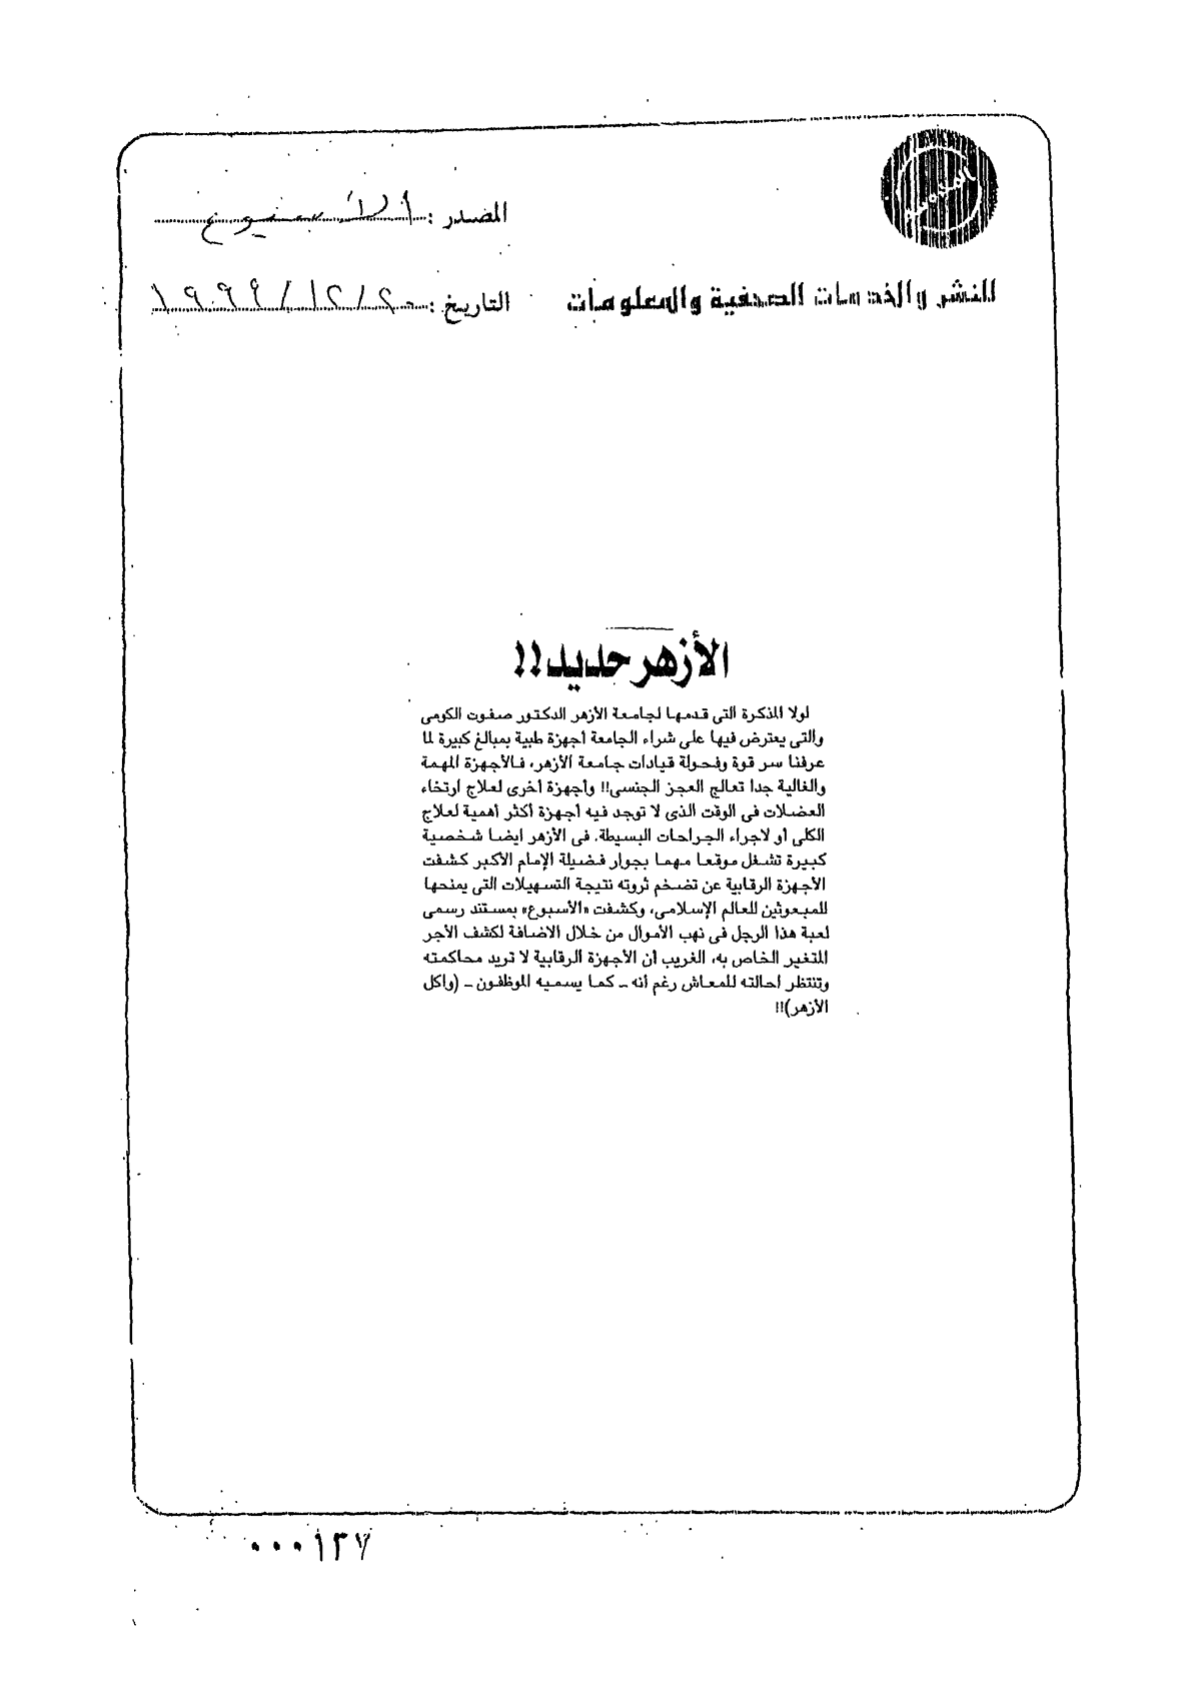 المصدر : الأسبوع
للنشر والخدمات الصحفية والمعلومات
التاريخ : ٢٠/١٢/١٩٩٩
الأزهر حديد!!
لولا المذكرة التى قدمها لجامعة الأزهر الدكتور صفوت الكومى
والتى يعترض فيها على شراء الجامعة أجهزة طبية بمبالغ كبيرة لما
عرفنا سر قوة وفحولة قيادات جامعة الأزهر، فالأجهزة المهمة
والغالية جدا تعالج العجز الجنسى!! وأجهزة أخرى لعلاج ارتخاء
العضلات فى الوقت الذى لا توجد فيه أجهزة أكثر أهمية لعلاج
الكلى أو لاجراء الجراحات البسيطة. فى الأزهر ايضا شخصية
كبيرة تشغل موقعا مهما بجوار فضيلة الإمام الأكبر كشفت
الأجهزة الرقابية عن تضخم ثروته نتيجة التسهيلات التى يمنحها
للمبعوثين للعالم الإسلامى، وكشفت «الأسبوع» بمستند رسمى
لعبة هذا الرجل فى نهب الأموال من خلال الاضافة لكشف الأجر
المتغير الخاص به، الغريب أن الأجهزة الرقابية لا تريد محاكمته
وتنتظر احالته للمعاش رغم أنه ــ كما يسميه الموظفون ــ (واكل
الأزهر)!!
٠٠٠١٣٧